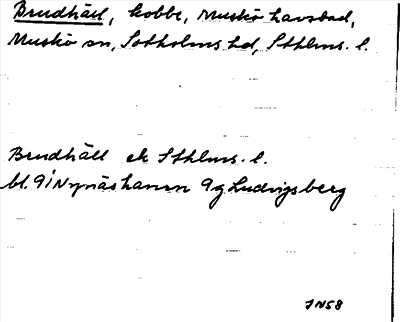 Brudhäll, kobbe, Muskö havsbad,
Muskö sn, Sotholms hd, Sthlms. l.
Brudhäll ek Sthlms. l.
bl. 9i Nynäshamn 9g Ludvigsberg
JN58